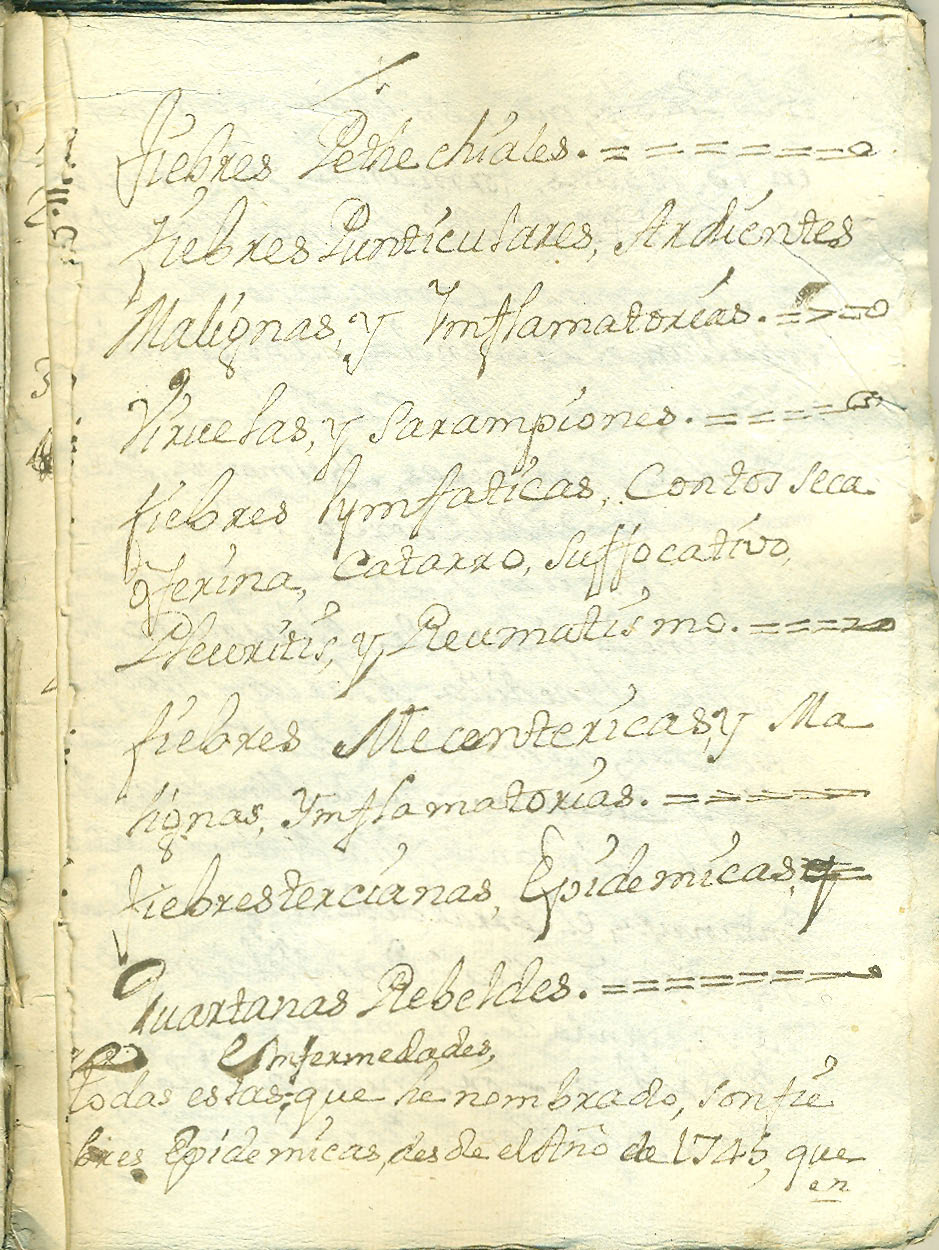 Fiebres Pethechiales. = = = = = = =
Fiebres Punticulares, Ardientes
Malignas, y Ymflamatorias. = = = =
Viruelas, y Sarampiones. = = = = =
fiebres lymfaticas, Con tos seca
ferina, Catarro, Suffocativo,
Pleuritis, y Reumatismo. = = = =
fiebres Mecentericas, y Ma
lignas, Ymflamatorias. = = = = =
fiebres tercianas, Epidemicas, y
Quartanas Rebeldes. = = = = = = = =
Enfermedades,
todas estas, que he nombrado, son fie
bres Epidemicas, desde el Año de 1745, que
en